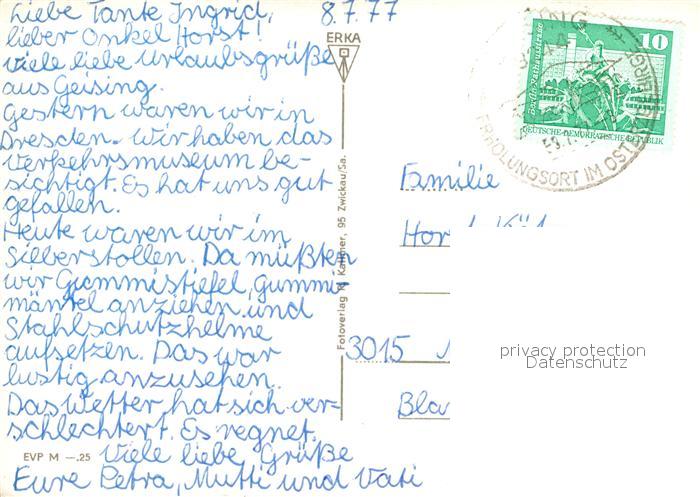 Liebe Tante Ingrid,
8.7.77
lieber Onkel Horst!
viele liebe Urlaubsgrüße
aus Geising.
Gestern waren wir in
Dresden. Wir haben das
Verkehrsmuseum be-
sichtigt. Es hat uns gut
gefallen.
Heute waren wir im
Silberstollen. Da müßten
wir Gummistiefel, Gummi-
mäntel anziehen und
Stahlschutzhelme
aufsetzen. Das war
lustig anzusehen.
Das Wetter hat sich ver-
schlechtert. Es regnet.
Viele liebe Grüße
Eure Petra, Mutti und Vati
EVP M —.25
ERKA
Fotoverlag R. Kallmer, 95 Zwickau/Sa.
10
DEUTSCHE DEMOKRATISCHE REPUBLIK
ERHOLUNGSORT IM OSTERZGEBIRGE
Familie
3015
privacy protection
Datenschutz